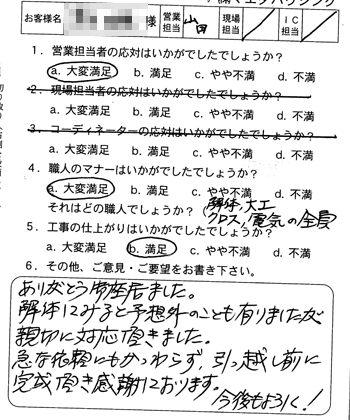 お客様名 様 営業担当 山田 現場担当 IC担当
1. 営業担当者の応対はいかがでしたでしょうか?
a. 大変満足 b. 満足 c. やや不満 d. 不満
2. 現場担当者の応対はいかがでしたでしょうか?
a. 大変満足 b. 満足 c. やや不満 d. 不満
3. コーディネーターの応対はいかがでしたでしょうか?
a. 大変満足 b. 満足 c. やや不満 d. 不満
4. 職人のマナーはいかがでしたでしょうか?
a. 大変満足 b. 満足 c. やや不満 d. 不満
それはどの職人でしょうか? (解体、大工
クロス、電気の全員
5. 工事の仕上がりはいかがでしたでしょうか?
a. 大変満足 b. 満足 c. やや不満 d. 不満
6. その他、ご意見・ご要望をお書き下さい。
ありがとう御座居ました。
解体してみると予想外のことも有りましたが
親切に対応頂きました。
急な依頼にもかかわらず、引っ越し前に
完成頂き感謝しております。
今後もよろしく!